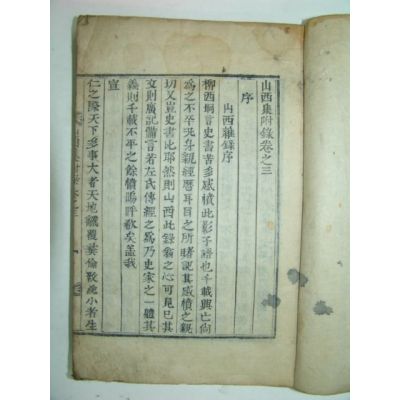 山西集附錄卷之三
序
山西雜錄序
柳西坰言史書苦多感憤此影子語也千載興亡尚
爲之不平況身經歷耳目之所睹記其感憤之親
切又豈史書比耶然則山西此錄翁之心可見已其
文則廣記備言若左氏傳經之爲乃史家之一體其
義則千載不平之餘憤嗚呼欷矣蓋我
宣
仁之際天下多事大者天地飜覆彛倫斁絶小者生